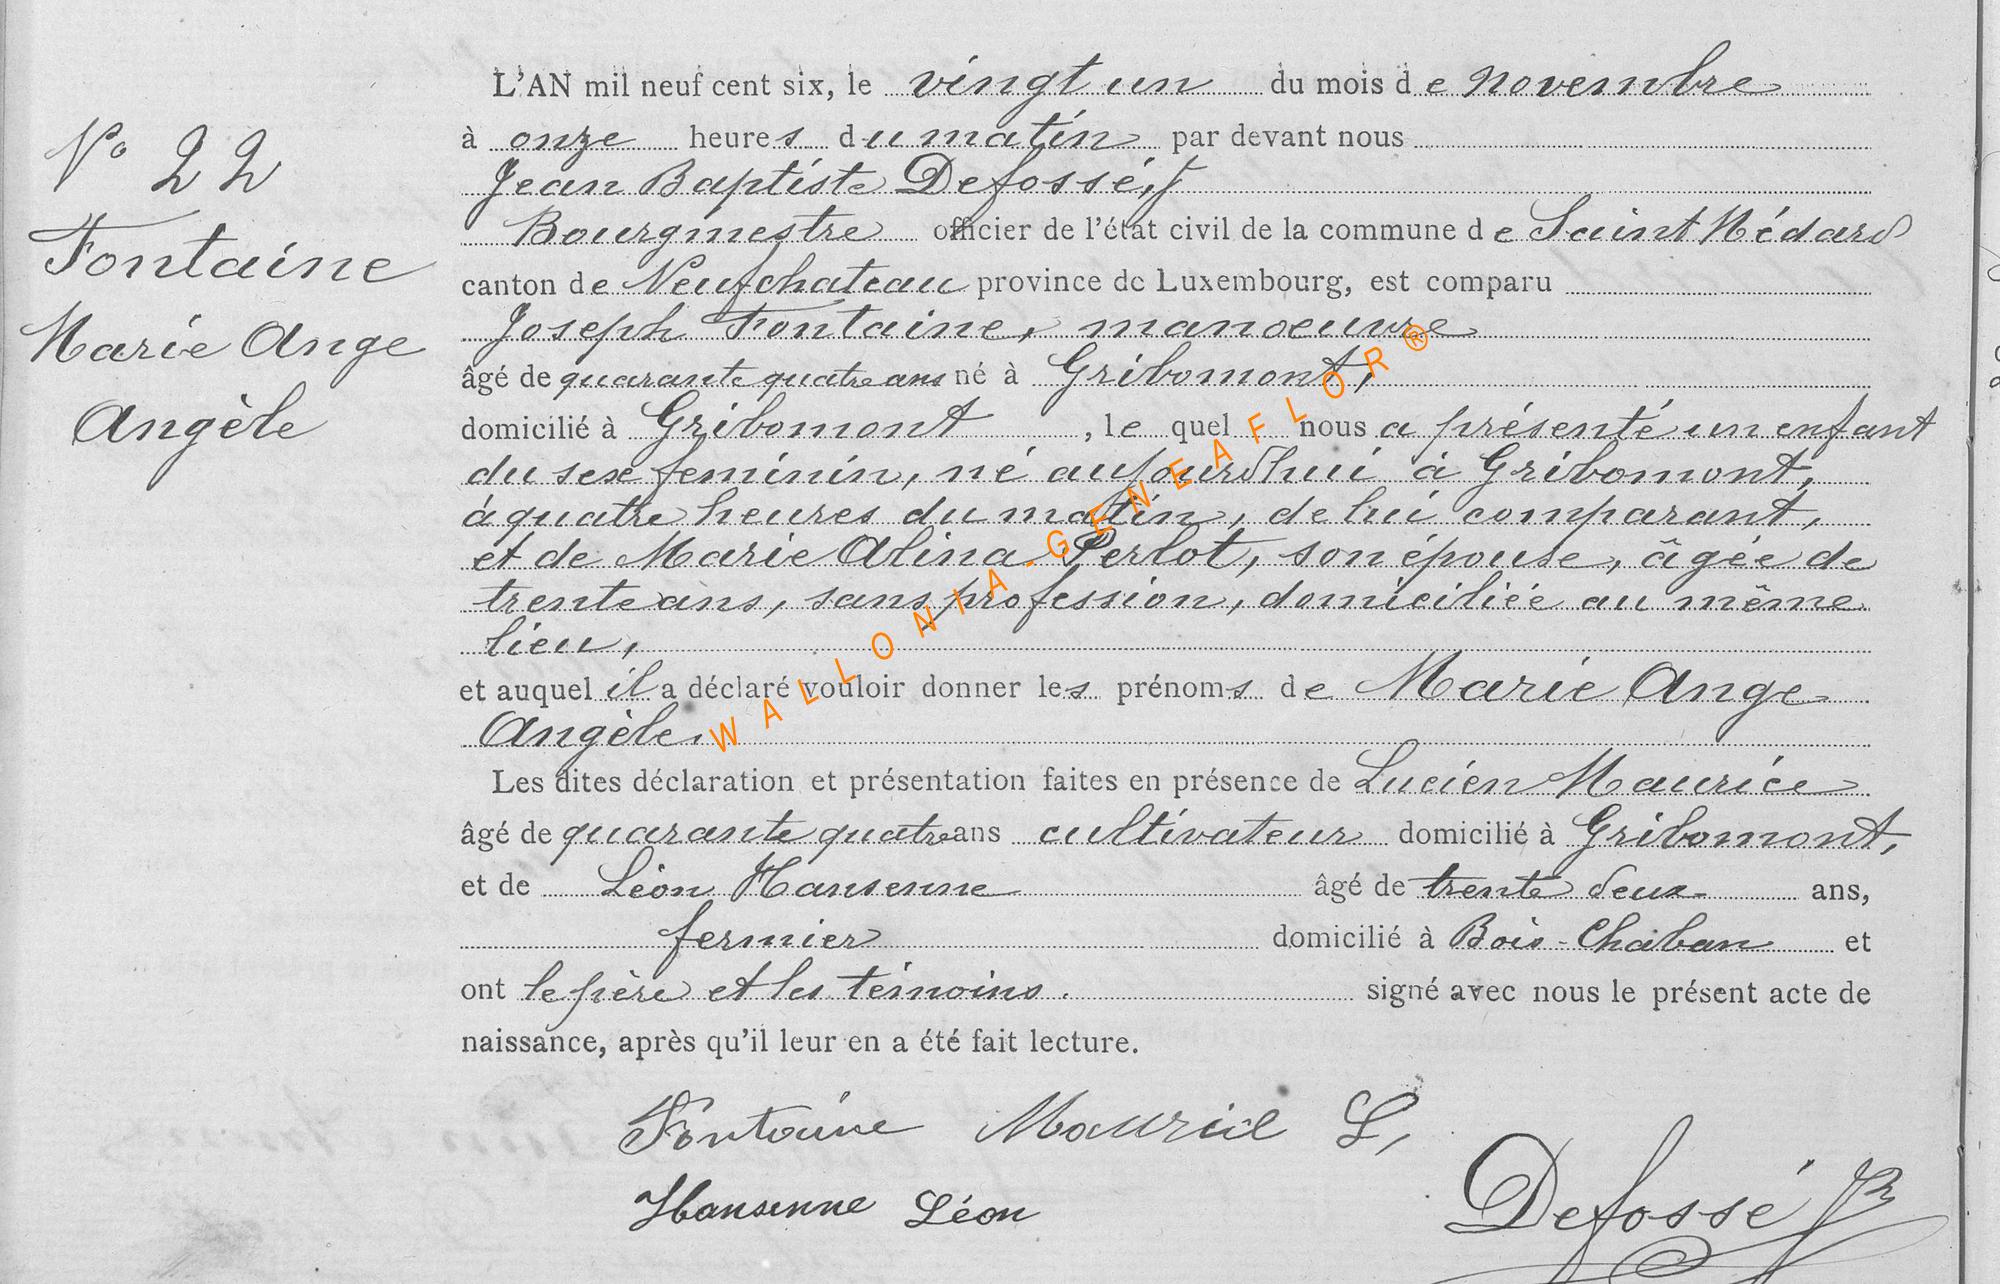 N° 22
Fontaine
Marie Ange
Angèle
L'AN mil neuf cent six, le vingt un du mois de novembre
à onze heures du matin par devant nous
Jean Baptiste Defossé,
Bourgmestre officier de l'état civil de la commune de Saint Médard
canton de Neufchateau province de Luxembourg, est comparu
Joseph Fontaine, manoeuvre
âgé de quarante quatre ans né à Gribomont,
domicilié à Gribomont, le quel nous a présenté un enfant
du sexe feminin, né aujourd'hui à Gribomont,
à quatre heures du matin, de lui comparant,
et de Marie Alina Perlot, son épouse, âgée de
trente ans, sans profession, domiciliée au même
lieu,
et auquel il a déclaré vouloir donner les prénoms de Marie Ange
Angèle.
Les dites déclaration et présentation faites en présence de Lucien Maurice
âgé de quarante quatre ans cultivateur domicilié à Gribomont,
et de Léon Hansenne âgé de trente deux ans,
fermier domicilié à Bois-Chaban et
ont le père et les témoins. signé avec nous le présent acte de
naissance, après qu'il leur en a été fait lecture.
Fontaine Maurice L,
Hansenne Léon
Defossé JB
WALLONIA-GENEAFLOR®